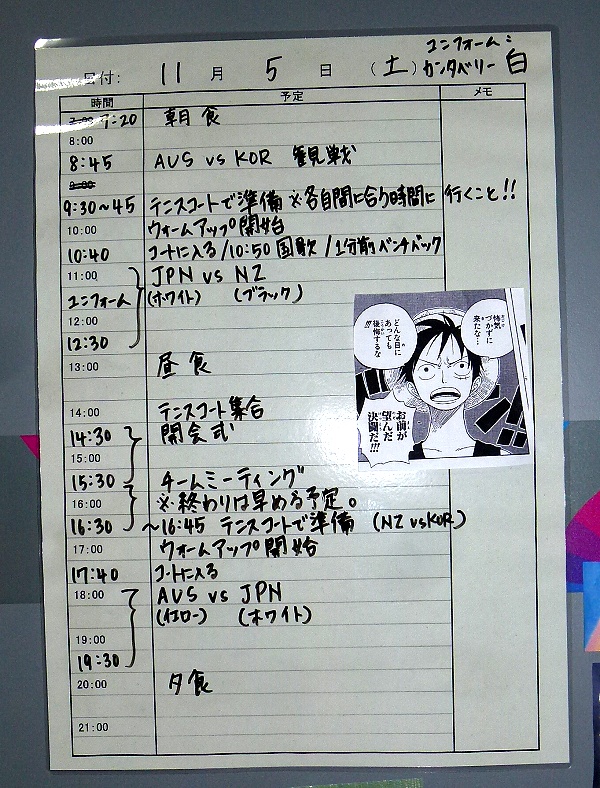 ユニフォーム:
日付: 11 月 5 日 (土) カンタベリー 白
時間 予定 メモ
7:00 7:20 朝食
8:00
8:45 AUS vs KOR 観戦
9:00
9:30~45 テニスコートで準備 ※各自間に合う時間に行くこと!!
10:00 ウォームアップ開始
10:40 コートに入る/10:50 国歌/1分前ベンチバック
11:00 JPN vs NZ
ユニフォーム (ホワイト) (ブラック)
12:00
12:30
13:00 昼食
14:00 テニスコート集合
14:30 開会式
15:00
15:30 チームミーティング
16:00 ※終わりは早める予定。
16:30 ~16:45 テニスコートで準備 (NZ vs KOR)
17:00 ウォームアップ開始
17:40 コートに入る
18:00 AUS vs JPN
(イエロー) (ホワイト)
19:00
19:30
20:00 夕食
21:00
怖気
づかずに
来たな…
どんな目に
あっても
後悔するな
!!!
お前が
望んだ
決闘だ!!!